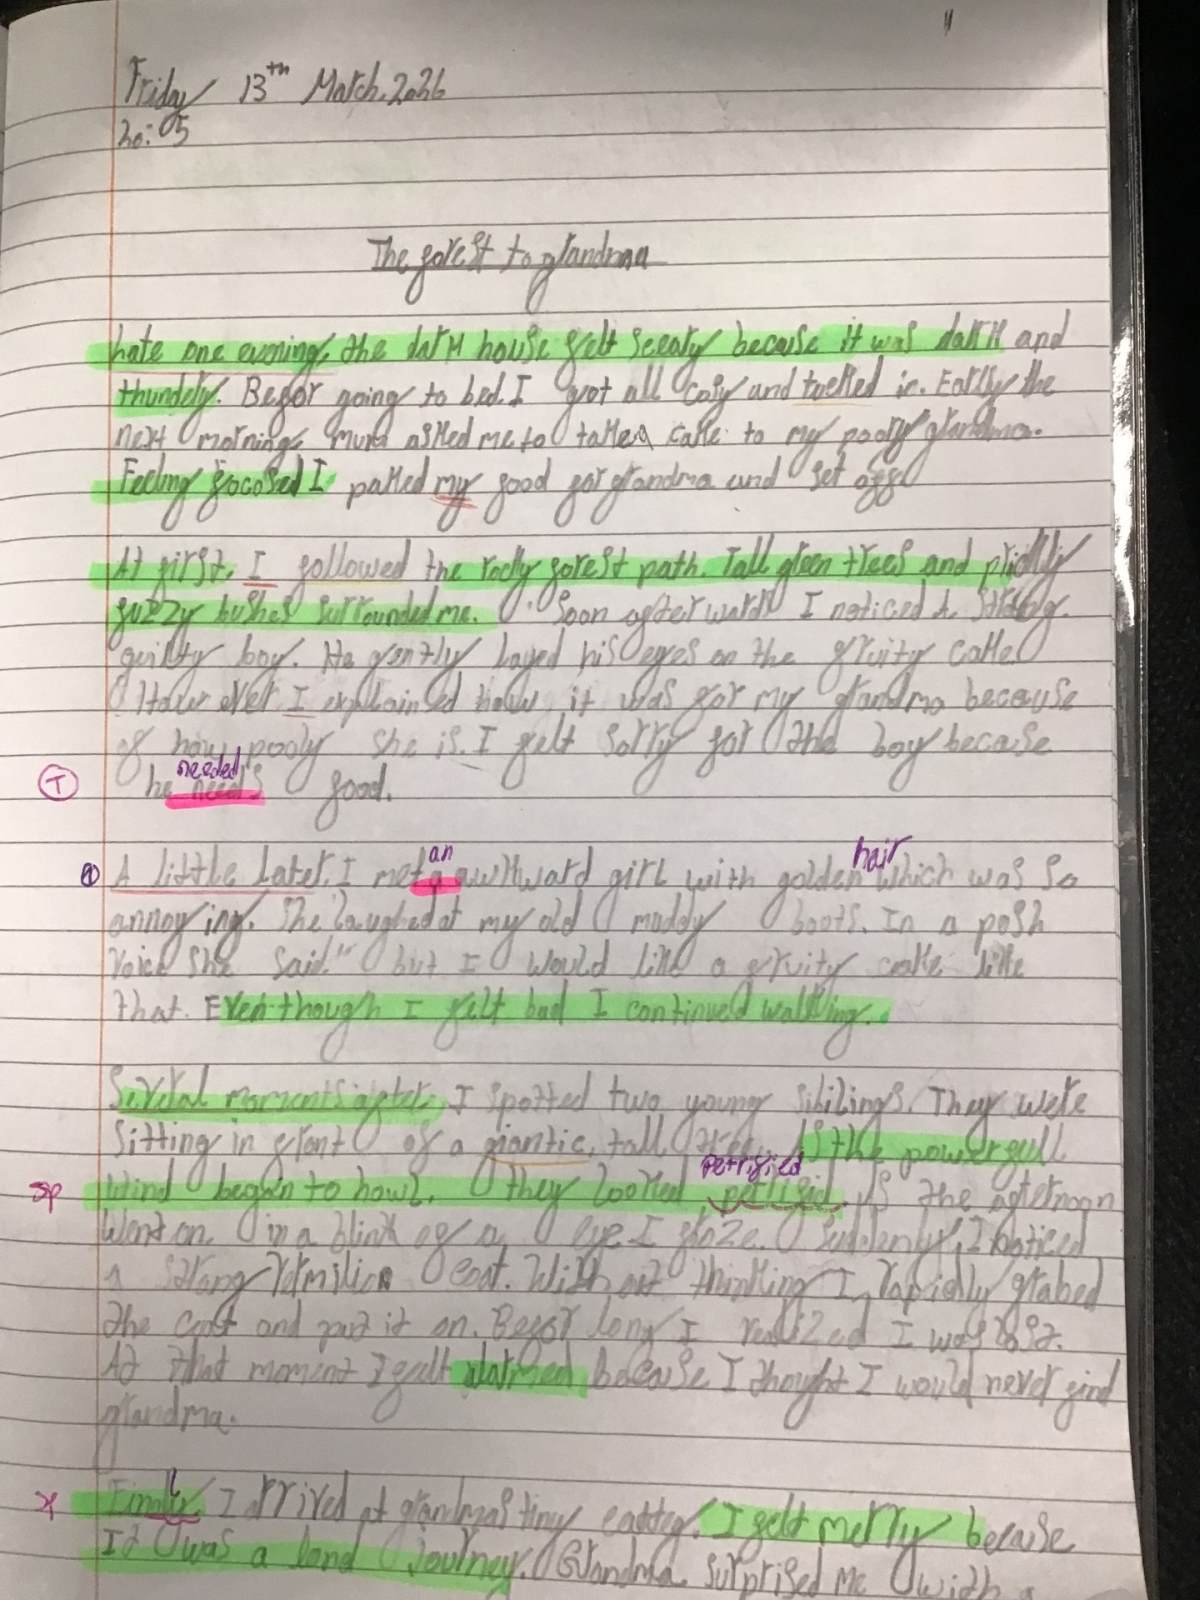 Friday 13th March 2026
20:05
The forest to grandma
Late one evening, the dark house felt sceary because it was dark and
thundery. Befor going to bed. I got all cosy and tucked in. Early the
next morning, mum asked me to take a cake to my poorly grandma.
Feeling focosed I packed my food for grandma and set off.
At first, I followed the rocky forest path. Tall green trees and prickly
fuzzy bushes surrounded me. Soon afterwards I noticed a strong
guilty boy. He gently layed his eyes on the fruity cake
How ever I explained how it was for my grandma because
of how pooly she is. I felt sorry for the boy because
T
needed
he needs food.
an
hair
A little later, I met a awkward girl with golden which was so
annoying. She laughed at my old muddy boots. In a posh
voice she said " but I would like a fruity cake like
that. Even though I felt bad I continued walking.
Several moments after, I spotted two young sibilings. They were
sitting in front of a giantic, tall tree. As the powerfull
petrified
sp wind began to howl. they looked As the afternoon
went on in a blink of a eye I froze. Suddenly, I noticed
a strong vermilion coat. With out thinking I rapidly grabed
the coat and put it on. Befor long I realized I was lost.
At that moment I felt alarmed because I thought I would never find
grandma.
I arrived at grandmas tiny I felt merry because
It was a long journey. Grandma surprised me with a